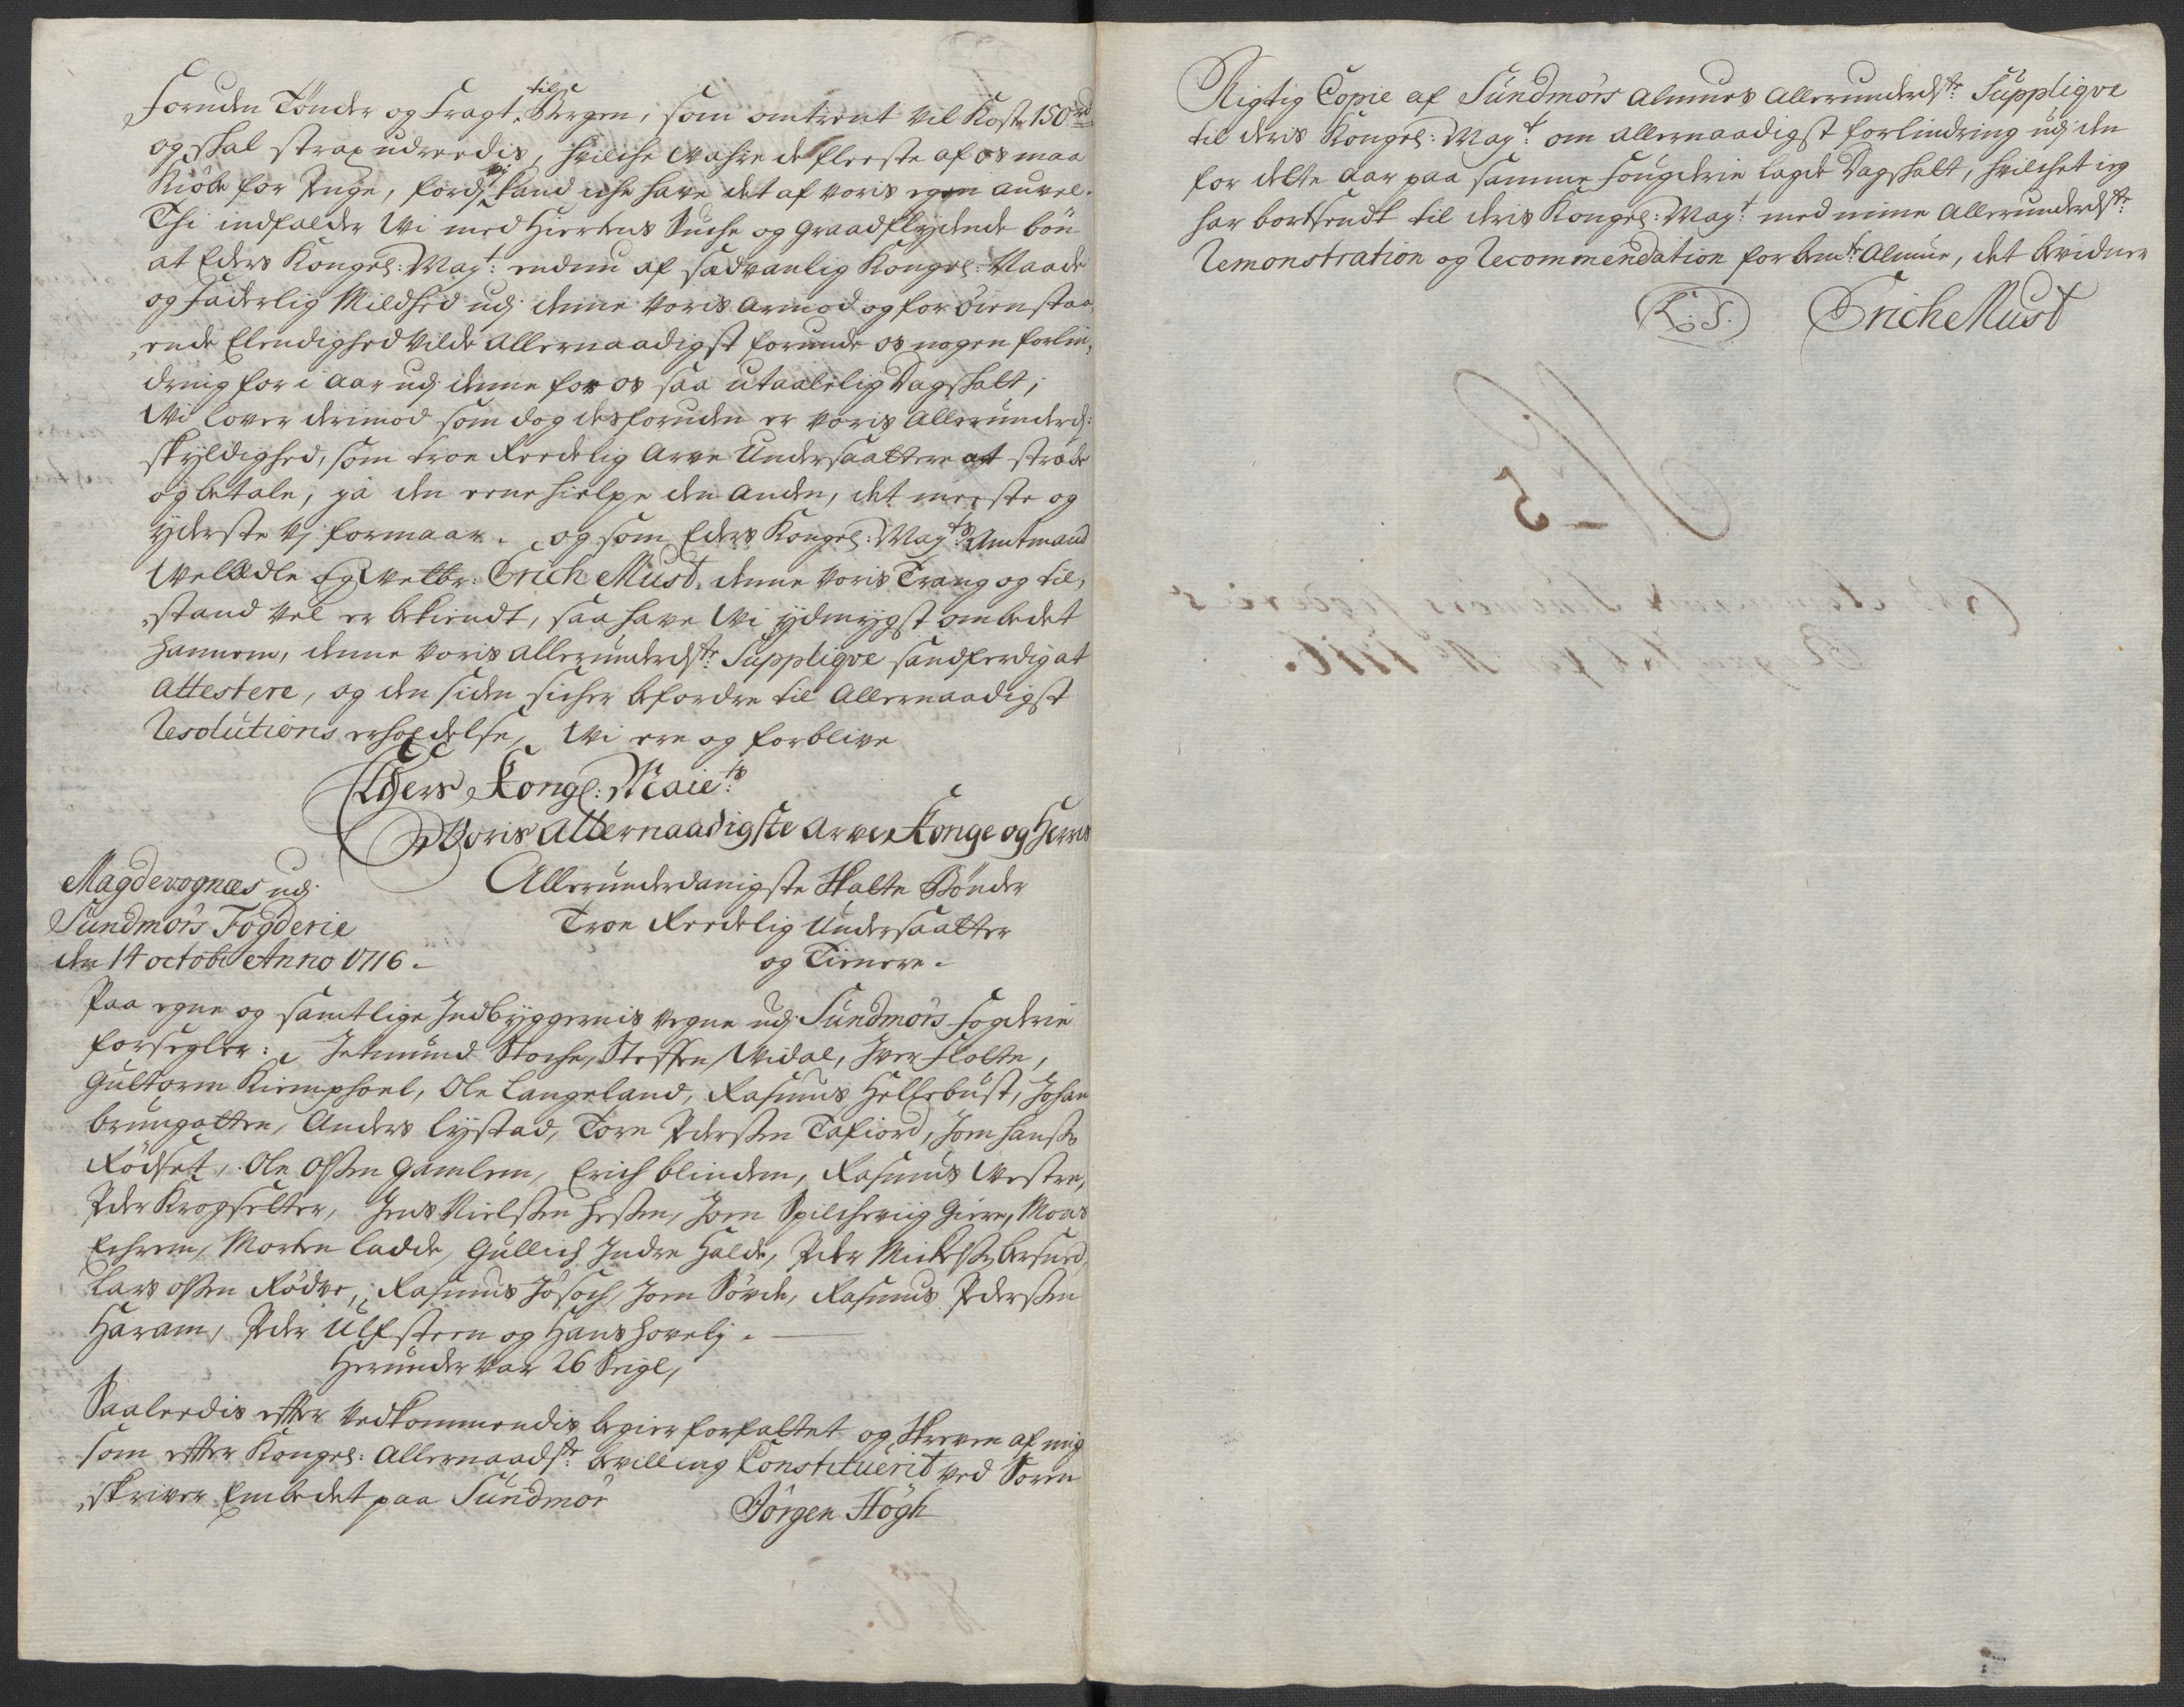 Foruden Tønder og Fragt til Bergen, som omtrent vil Koste 150 rd
og skal strax udreedis, hvilche Vahre de fleeste af os maa
Kiøbe for Penge, fordj vi kand iche have det af voris egen auvel.
Thi indfalder Wi med Hiertens Suche og graadflydende bøn
at Eders Kongel: May:t endnu af sædvanlig Kongel: Naade
og Faderlig Mildhed udj denne voris armod og for øien staa-
ende Elendighed vilde Allernaadigst forunde os nogen forlin-
dring for i Aar udj denne for os saa utaalelig Dagskatt;
Wi lover derimod som dog desforuden er voris Allerunderd:
skyldighed, som troe Reedelig Arve Undersaattere at stræbe
og betale, ja den eene hielpe den anden, det meeste og
yderste Vj formaar. og som Eders Kongel: May:ts Amtmand
WelÆdle og Welbr: Erich Must, denne voris Trang og til-
stand vel er bekiendt, saa have Wi ydmygst ombedet
hannem, denne voris allerunderd:ste Suppliqve sandferdig at
Attestere, og den siden sicher befordre til Allernaadigst
Resolutions erholdelse, Wi ere og forblive
Eders Kongl: Maie:ts
Voris Allernaadigste Arve Konge og Herres
Magdevognæs udj Allerunderdanigste Skatte Bønder
Sundmørs Fogderie Troe Reedelig Undersaatter
den 14 octobr Anno 1716. og Tienere.
Paa egne og samtlige Indbyggernis vegne udj Sundmørs Fogderie
forsegler: Jetmund Stoche, Steffen Widal, Iver Flotte,
Guttorm Kiemphoel, Ole Langeland, Rasmus Hellebust, Johan
brungatten, Anders Lystad, Tore Pedersen Tafiord, Joen Hanss
Rødset, Ole Olsen Gamlem, Erich blindem, Rasmus Westre,
Peder Krogsetter, Jens Nielsen Hessen, Joen Spilchevig Giere, Mons
Erhrem, Morten Ladde, Gullich Indre Halde, Peder Michels
Lars Olsen Rødve, Rasmus Jøsoch, Joen Søvde, Rasmus Pedersen
Haram, Peder Ulfsteen og Hans Hovelj.
Herunder var 26 Seigl,
Saaledis efter vedkommendis begier forfattet og Skreven af mig
som efter Kongel: Allernaad:ste bevilling Constituerit ved Soren
skriver Embedet paa Sundmør
Jørgen Høgh
Rigtig Copie af Sundmørs Almues Allerunderd:ste Suppliqve
til deris Kongel: May:t om allernaadigst forlindring udj den
for dette Aar paa samme Fougderie lagde Dagskatt, hvilchet ieg
har bortsendt til deris Kongel: May:t med mine Allerunderd:ste
Remonstration og Recommendation for bem:te Almue, det bevidner
(L.S.) Erich Must